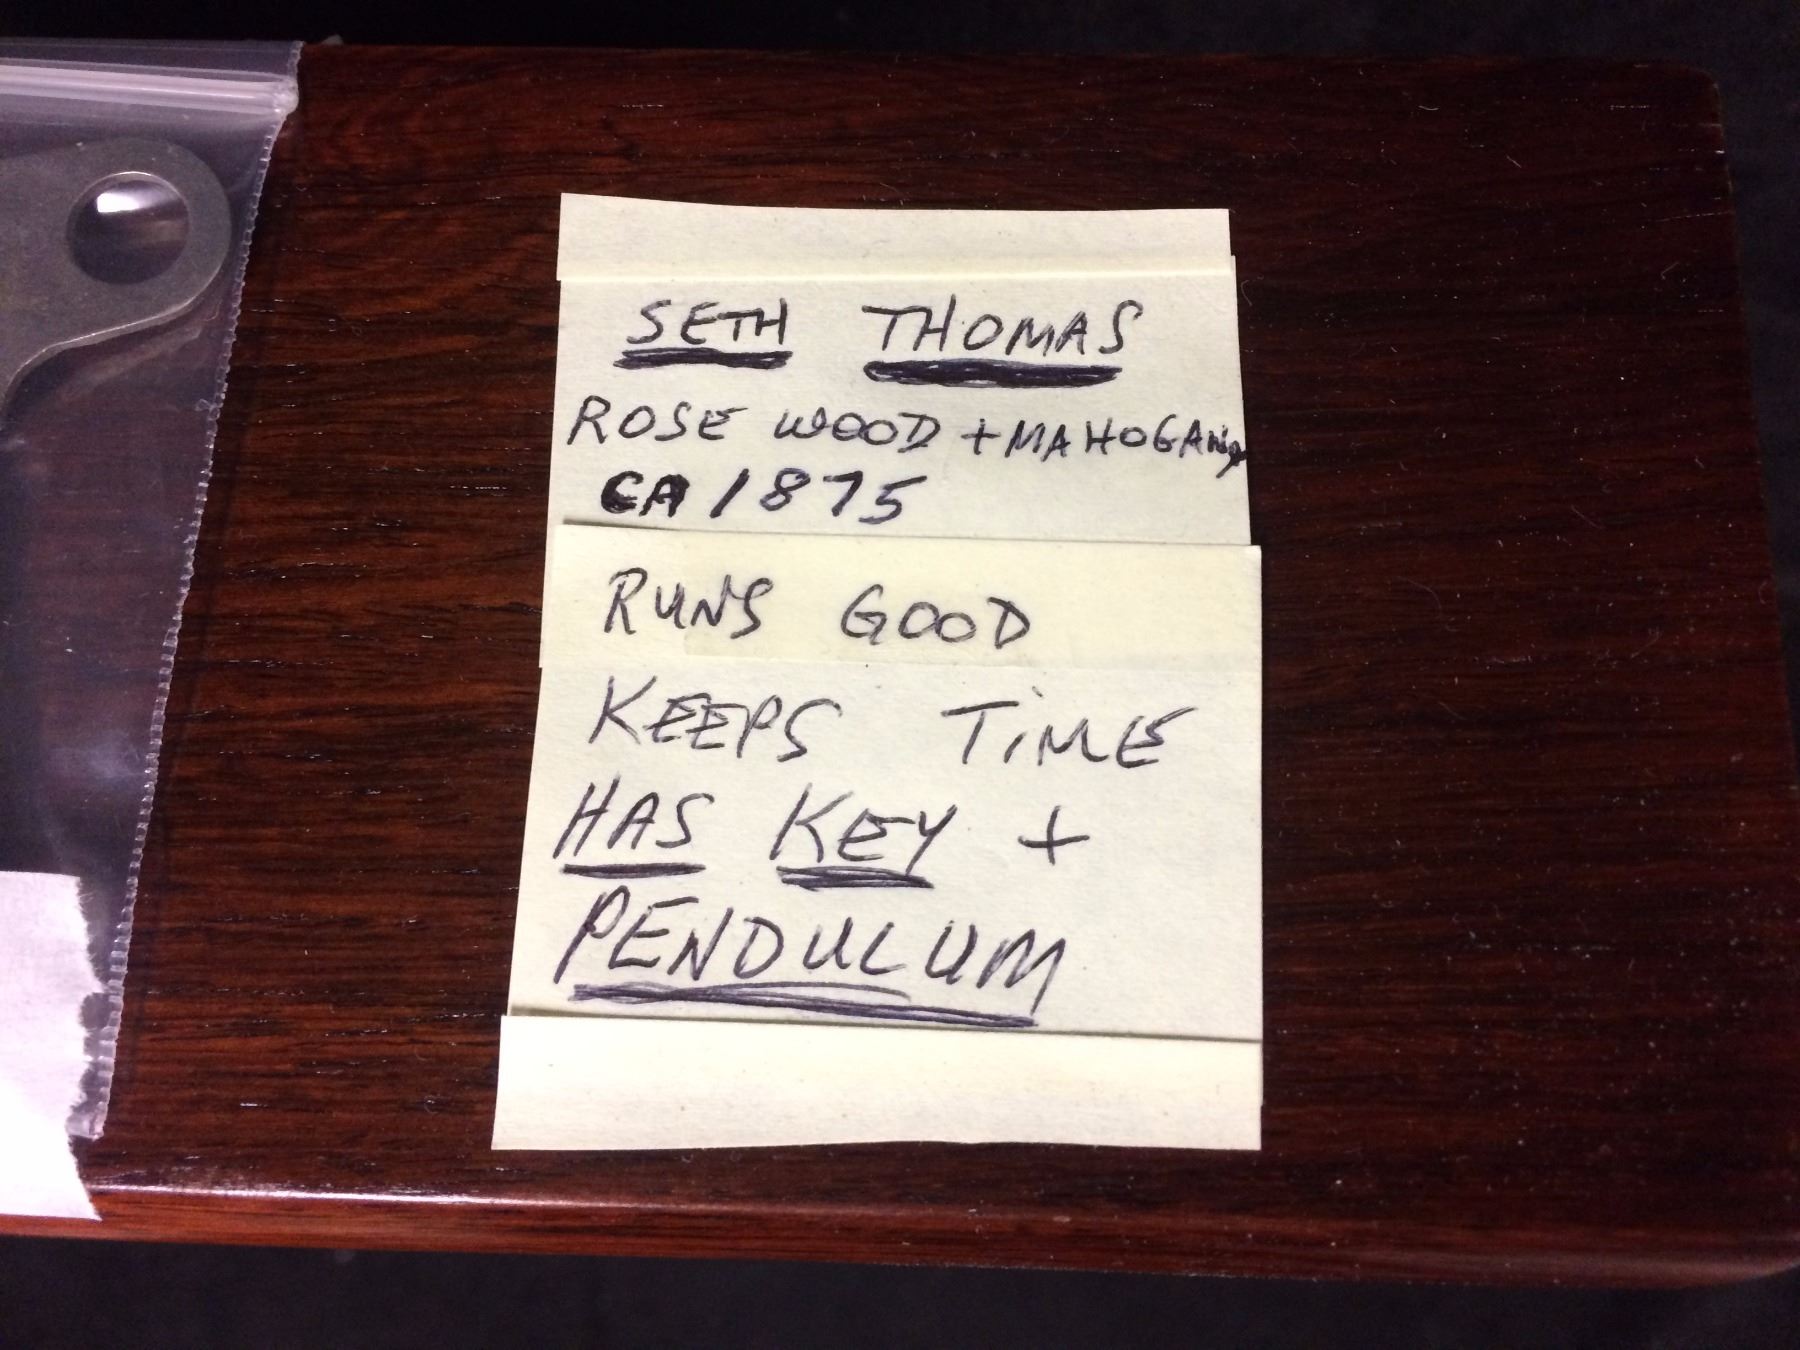 SETH THOMAS
ROSE WOOD + MAHOGANY
CA 1875
RUNS GOOD
KEEPS TiME
HAS KEY +
PENDULUM